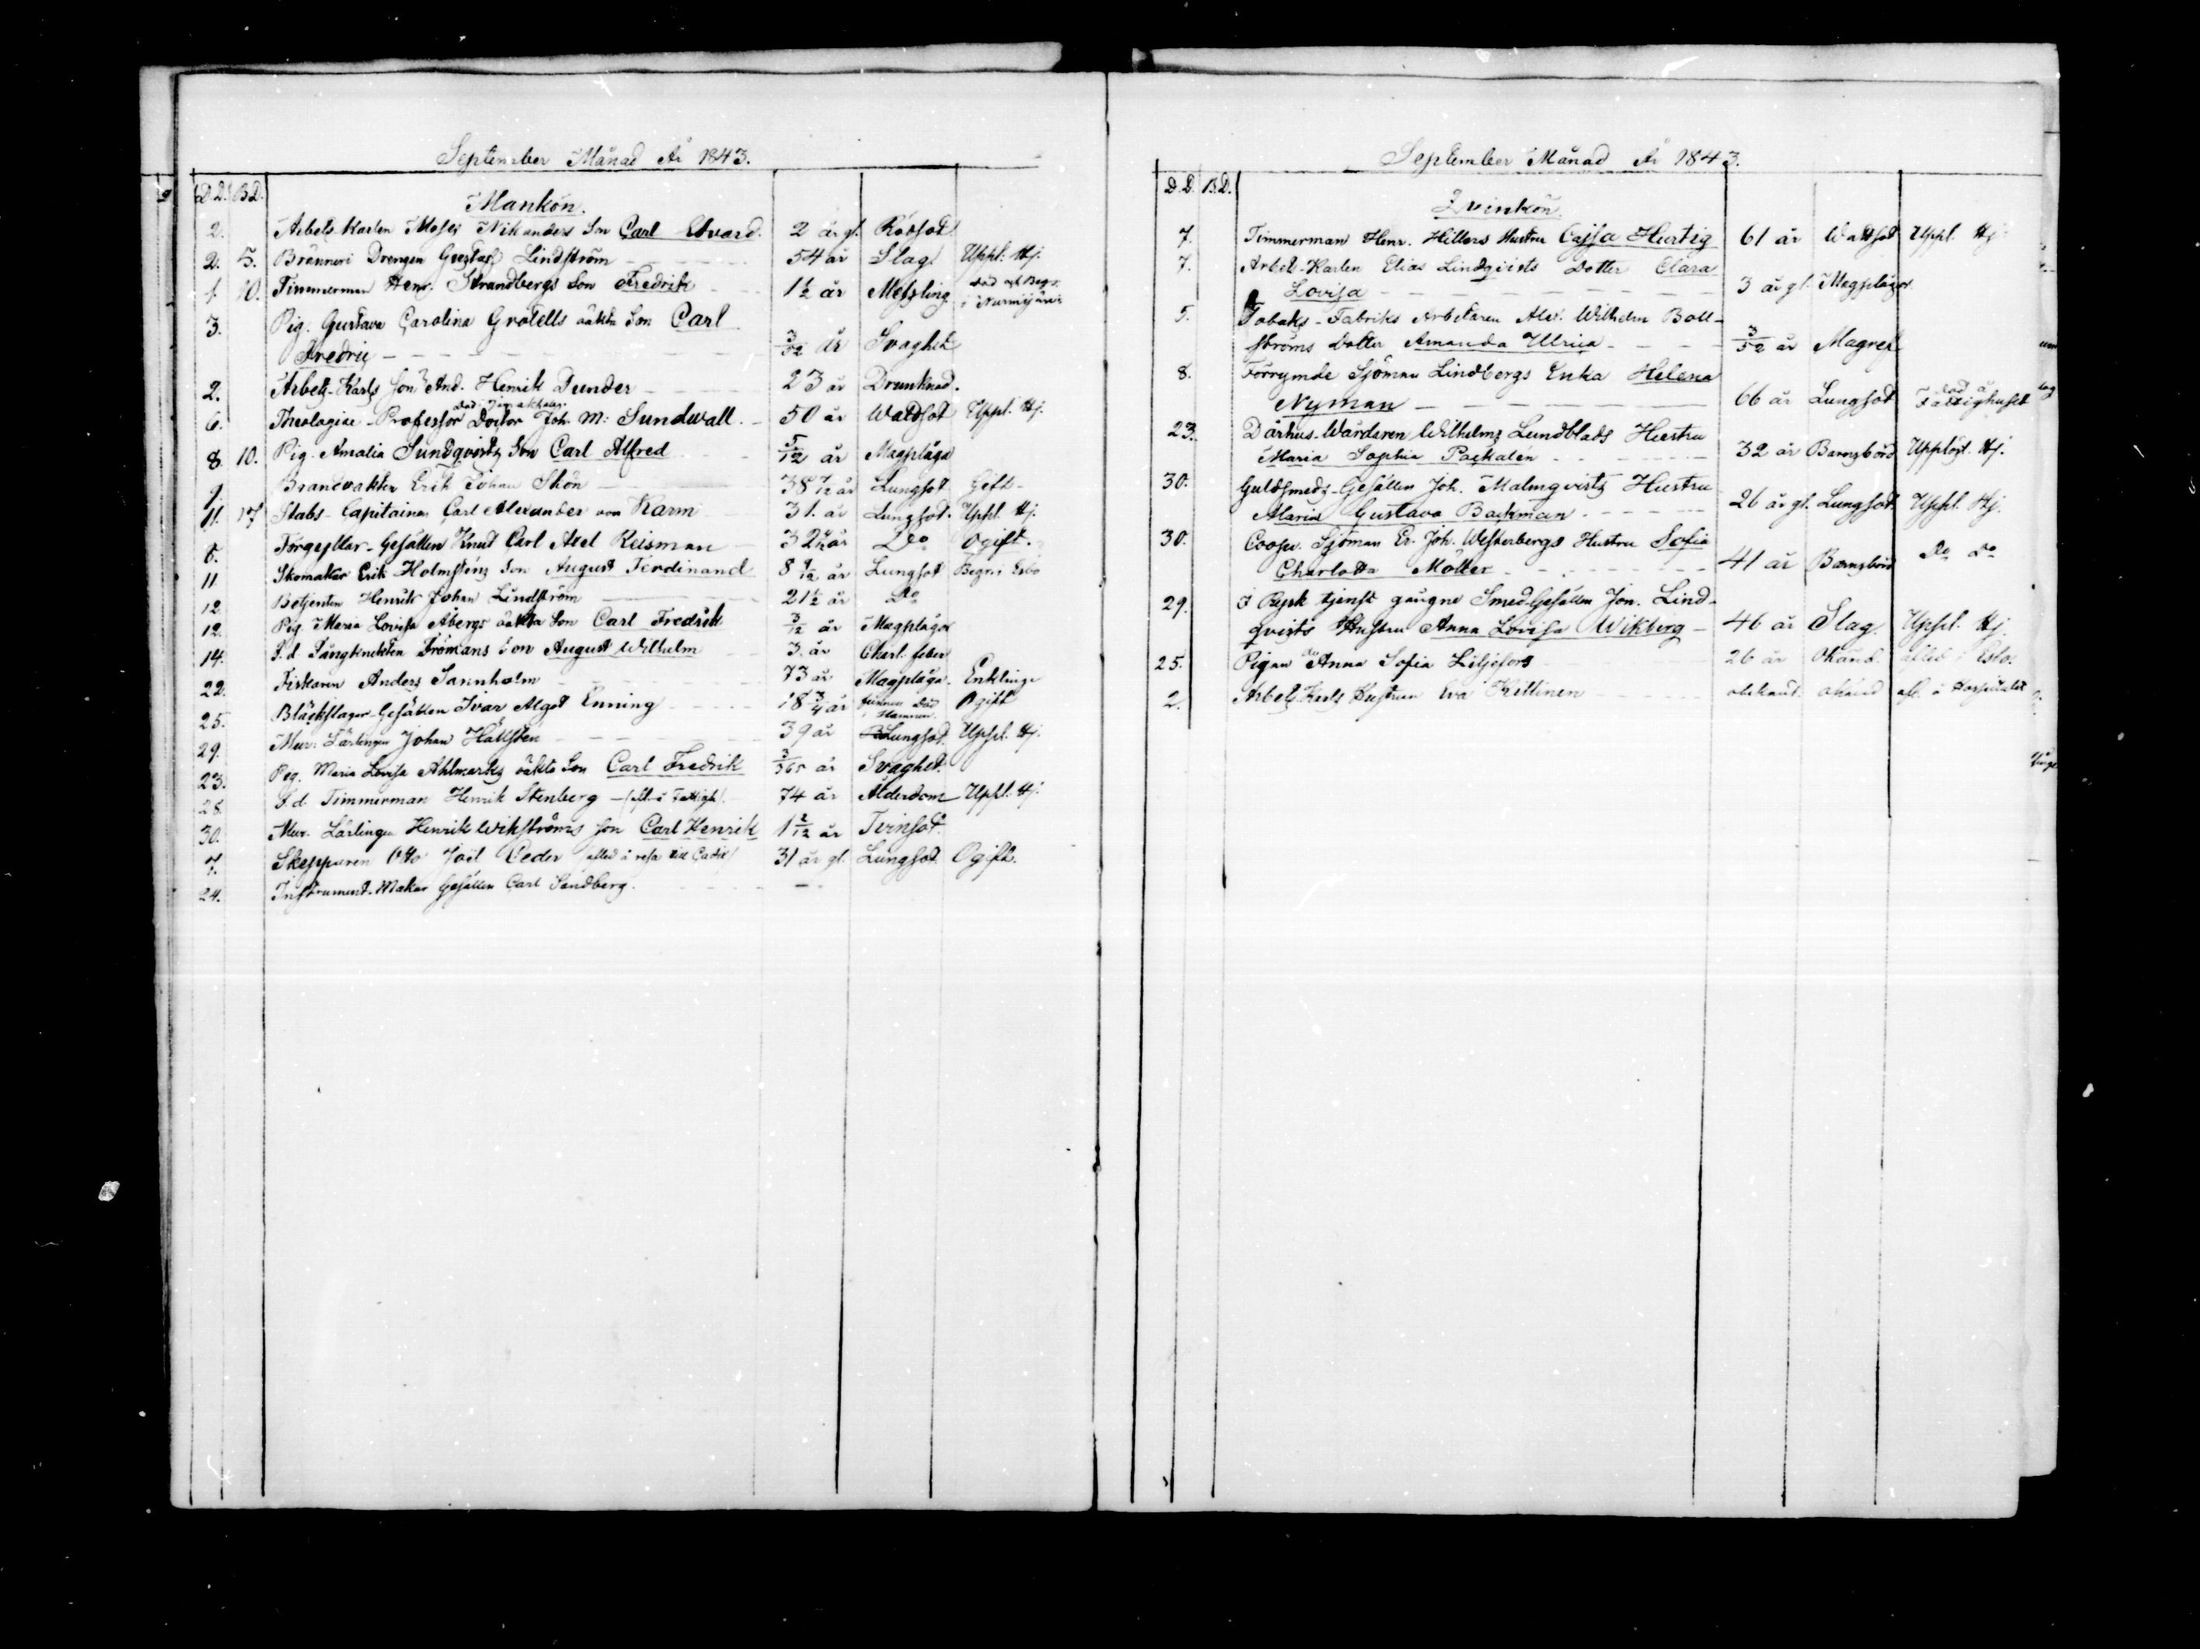 September Månad År 1843.
D.D. B.D.
Mankön.
2. Arbets-Karlen Moses Nikanders Son Carl Edvard. 2 år gl. Rödsot
2. 5. Bränneri Drengen Gustaf Lindström 54 år Slag. Uppl. Hj.
1. 10. Timmerman Henr. Strandbergs Son Fredrik 1 1/2 år Messling Död och Begr. i Nurmijärvi
3. Pig. Gustava Carolina Grotells oäkta Son Carl
Fredric 3/52 år Svaghet
2. Arbets-Karls Son And. Henrik Dunder 23 år Drunknad.
6. Theologiae Professor Doctor Joh. M: Sundwall. 50 år Wattsot Uppl. Hj.
8. 10. Pig. Amalia Sundqvists Son Carl Alfred 5/12 år Magplåga
9. Brandvakten Erik Johan Skön 38 7/12 år Lungsot Gift
11. 17 Stabs-Capitainen Carl Alexander von Karm 31. år Lungsot. Uppl. Hj.
5. Förgyllar-Gesällen Knut Carl Axel Reisman 32 år Do Ogift.
11 Skomakar Erik Holmsténs Son August Ferdinand 8 9/12 år Lungsot Begr. i Esbo
12. Betjenten Henrik Johan Lindström 21 1/2 år Do
12. Pig. Maria Lovisa Åbergs oäkta Son Carl Fredrik 3/12 år Magplågor
14. F.d. Fångknekten Frömans Son August Wilhelm 3. år Charl. feber
22. Fiskaren Anders Sannholm 73 år Magplåga. Enkling
25. Bläckslagar-Gesällen Ivar Algot Enning 18 3/4 år funnen död i Hamnen. Ogift
29. Mur. Lärlingen Johan Hällsten 39 år Lungsot. Uppl. Hj.
23. Pig. Maria Lovisa Ahlmarks oäkta Son Carl Fredrik 3/365 år Svaghet.
28. F.d. Timmerman Henrik Stenberg (afl. å Fattigh.) 74 år Ålderdom Uppl. Hj.
30. Mur. Lärlingen Henrik Wikströms Son Carl Henrik 1 2/12 år Tvinsot.
7. Skepparen Otto Joël Ceder (afled å resa till Cadix) 31 år gl. Lungsot. Ogift.
24. Instrument-Makar Gesällen Carl Sandberg. –
September Månad År 1843.
D.D. B.D.
Qvinkön.
7. Timmerman Henr. Hillers Hustru Cajsa Hurtig 61 år Wattsot Uppl. Hj.
7. Arbets-Karlen Elias Lindqvists Dotter Clara
Lovisa 3 år gl. Magplågor
5. Tobaks-Fabriks Arbetaren Alex. Wilhelm Boll-
ströms Dotter Amanda Ulrica 3/52 år Magref
8. Förrymde Sjöman Lindbergs Enka Helena
Nyman 66 år Lungsot Död å Fattighuset
23. Dårhus-Wårdaren Wilhelms Lundblads Hustru
Maria Sophia Packalen 32 år Barnsbörd Upplöst. Hj.
30. Guldsmeds-Gesällen Joh. Malmqvists Hustru
Maria Gustava Backman 26 år gl. Lungsot. Uppl. Hj.
30. Coopv. Sjöman Er. Joh. Westerbergs Hustru Sofia
Charlotta Möller 41 år Barnsbörd Do Do
29. I Rysk tjenst gångne Smed-Gesällen Jon. Lind-
qvists Hustru Anna Lovisa Wikberg 46 år Slag. Uppl. Hj.
25. Pigan Anna Sofia Liljefors 26 år Okänd. afled i Esbo.
2. Arbets Karls Hustrun Eva Kettinen obekant. okänd afl. å Hospitalet